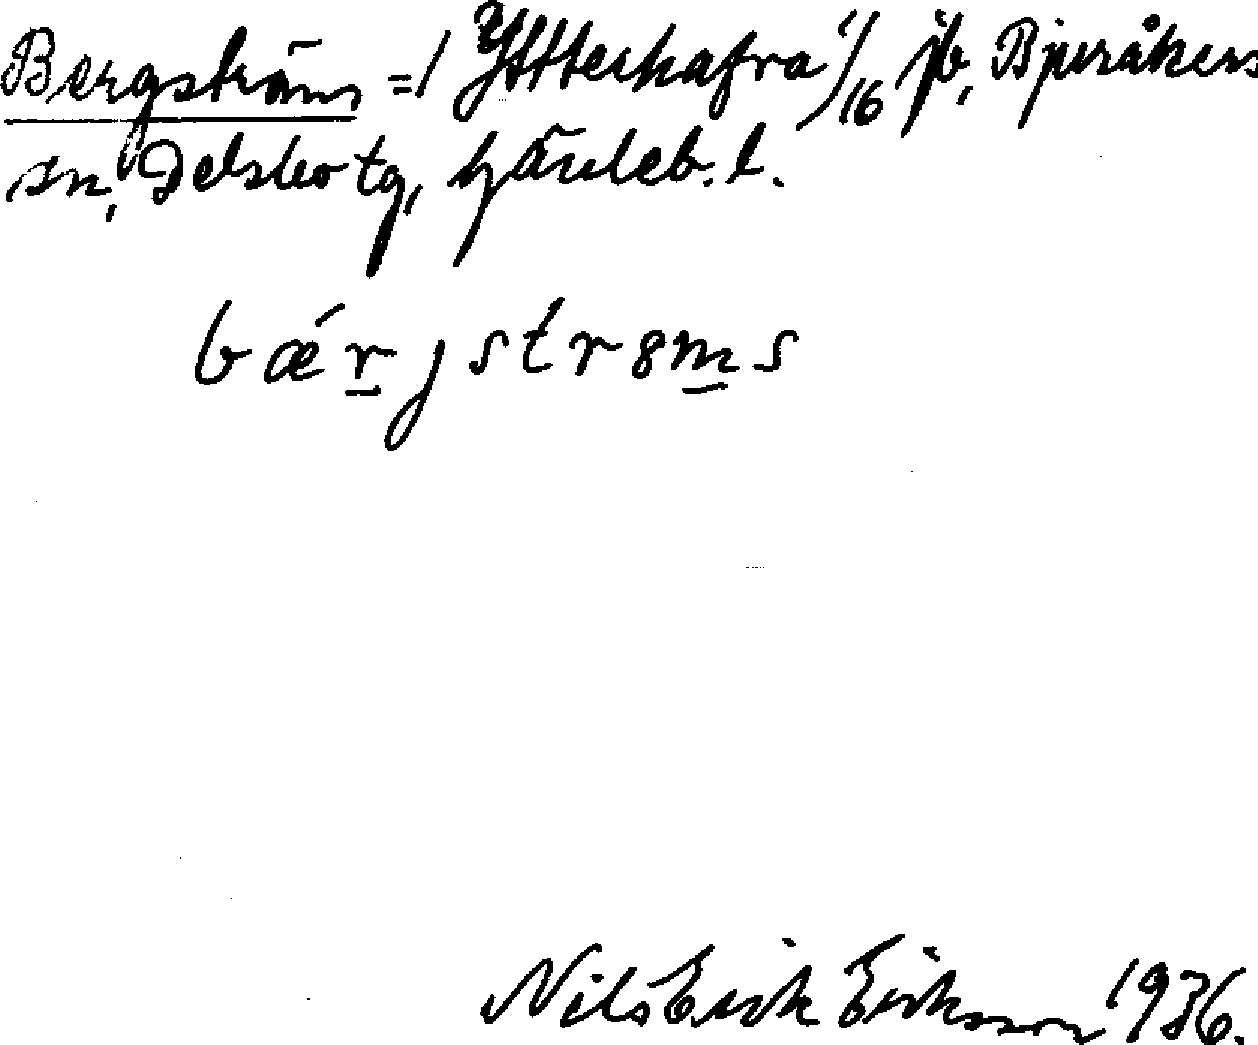 Bergströms = / Ytterhafra 1/16 jb, Bjuråkers
sn, Delsbo tg, Gävleb. l.
bǽrjstrɵms
Nils Erik Eriksson 1936.